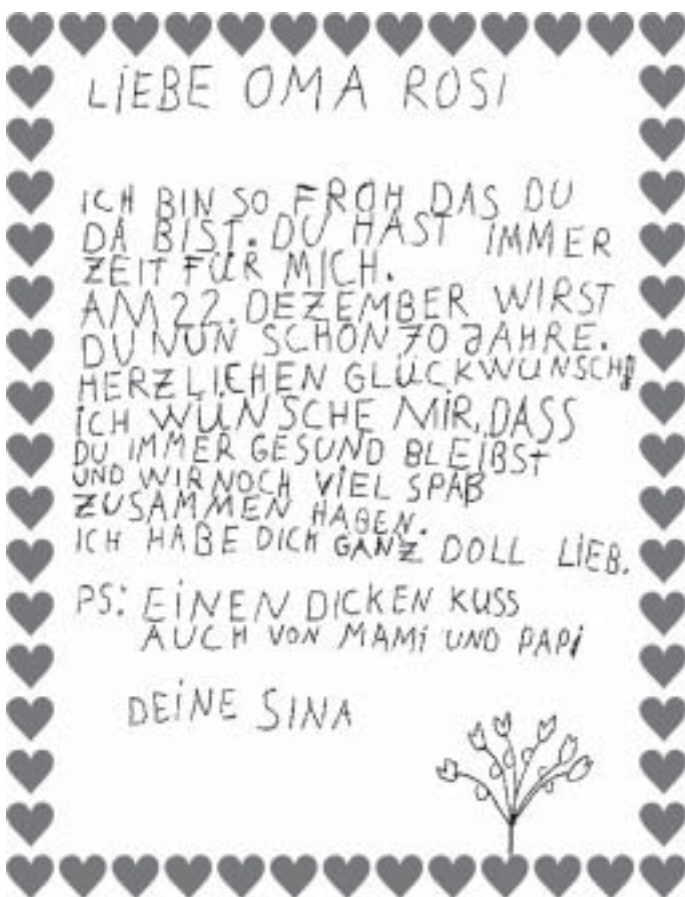 LIEBE OMA ROSI
ICH BIN SO FROH DAS DU
DA BIST. DU HAST IMMER
ZEIT FÜR MICH.
AM 22. DEZEMBER WIRST
DU NUN SCHON 70 JAHRE.
HERZLICHEN GLÜCKWUNSCH
ICH WÜNSCHE MIR, DASS
DU IMMER GESUND BLEIBST
UND WIR NOCH VIEL SPAß
ZUSAMMEN HABEN.
ICH HABE DICH GANZ DOLL LIEB.
PS: EINEN DICKEN KUSS
AUCH VON MAMI UND PAPI
DEINE SINA